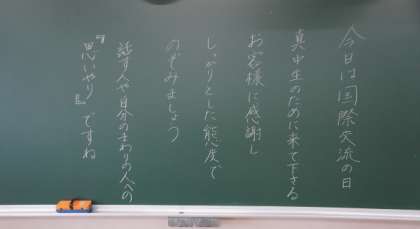 今日は国際交流の日
真中生のために来て下さる
お客様に感謝し
しっかりとした態度で
のぞみましょう
話す人や自分のまわりの人への
『思いやり』ですね